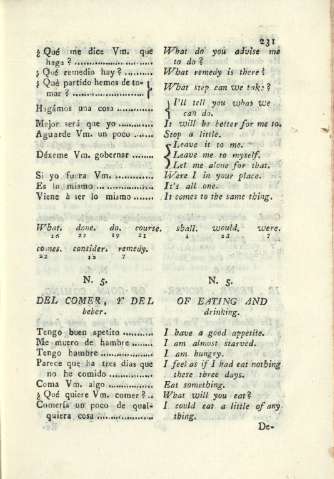 231
¿ Qué me dice Vm. que What do you advise me
haga ? ............ to do ?
¿ Qué remedio hay ? ......... What remedy is there ?
¿ Qué partido hemos de to- What step can we take ?
mar ? ..................
Hagámos una cosa ............ I'll tell you what we
can do.
Mejor será que yo ............ It will be better for me to.
Aguarde Vm. un poco ...... Stop a little.
Déxeme Vm. gobernar ....... Leave it to me.
Leave me to myself.
Let me alone for that.
Si yo fuera Vm. ............ Were I in your place.
Es lo mismo .................. It's all one.
Viene á ser lo mismo ....... It comes to the same thing.
What. done. do. course. shall. would. were.
16 22 19 21 1 22 7
comes. consider. remedy.
22 12 7
N. 5. N. 5.
DEL COMER, Y DEL OF EATING AND
beber. drinking.
Tengo buen apetito ......... I have a good appetite.
Me muero de hambre ...... I am almost starved.
Tengo hambre ............... I am hungry.
Parece que ha tres dias que I feel as if I had eat nothing
no he comido ............ these three days.
Coma Vm. algo ............ Eat something.
¿ Qué quiere Vm. comer ?.. What will you eat ?
Comería un poco de qual- I could eat a little of any
quiera cosa .................. thing.
De-